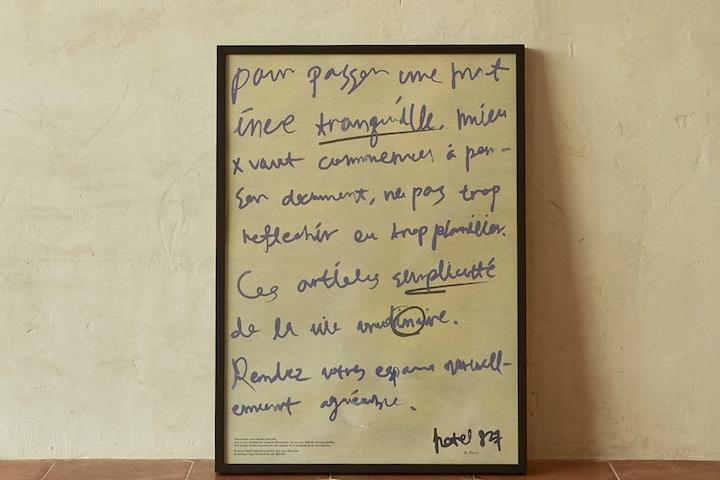 pour passer une nuit
inee tranquille, mieu
x vaut commencer à pen-
ser document, ne pas trop
reflechir ou trop planifier.
Ces articles simplicité
de la vie ordinaire.
Rendez votres espace naturell-
ement agréable.
hotel 827
de Paris